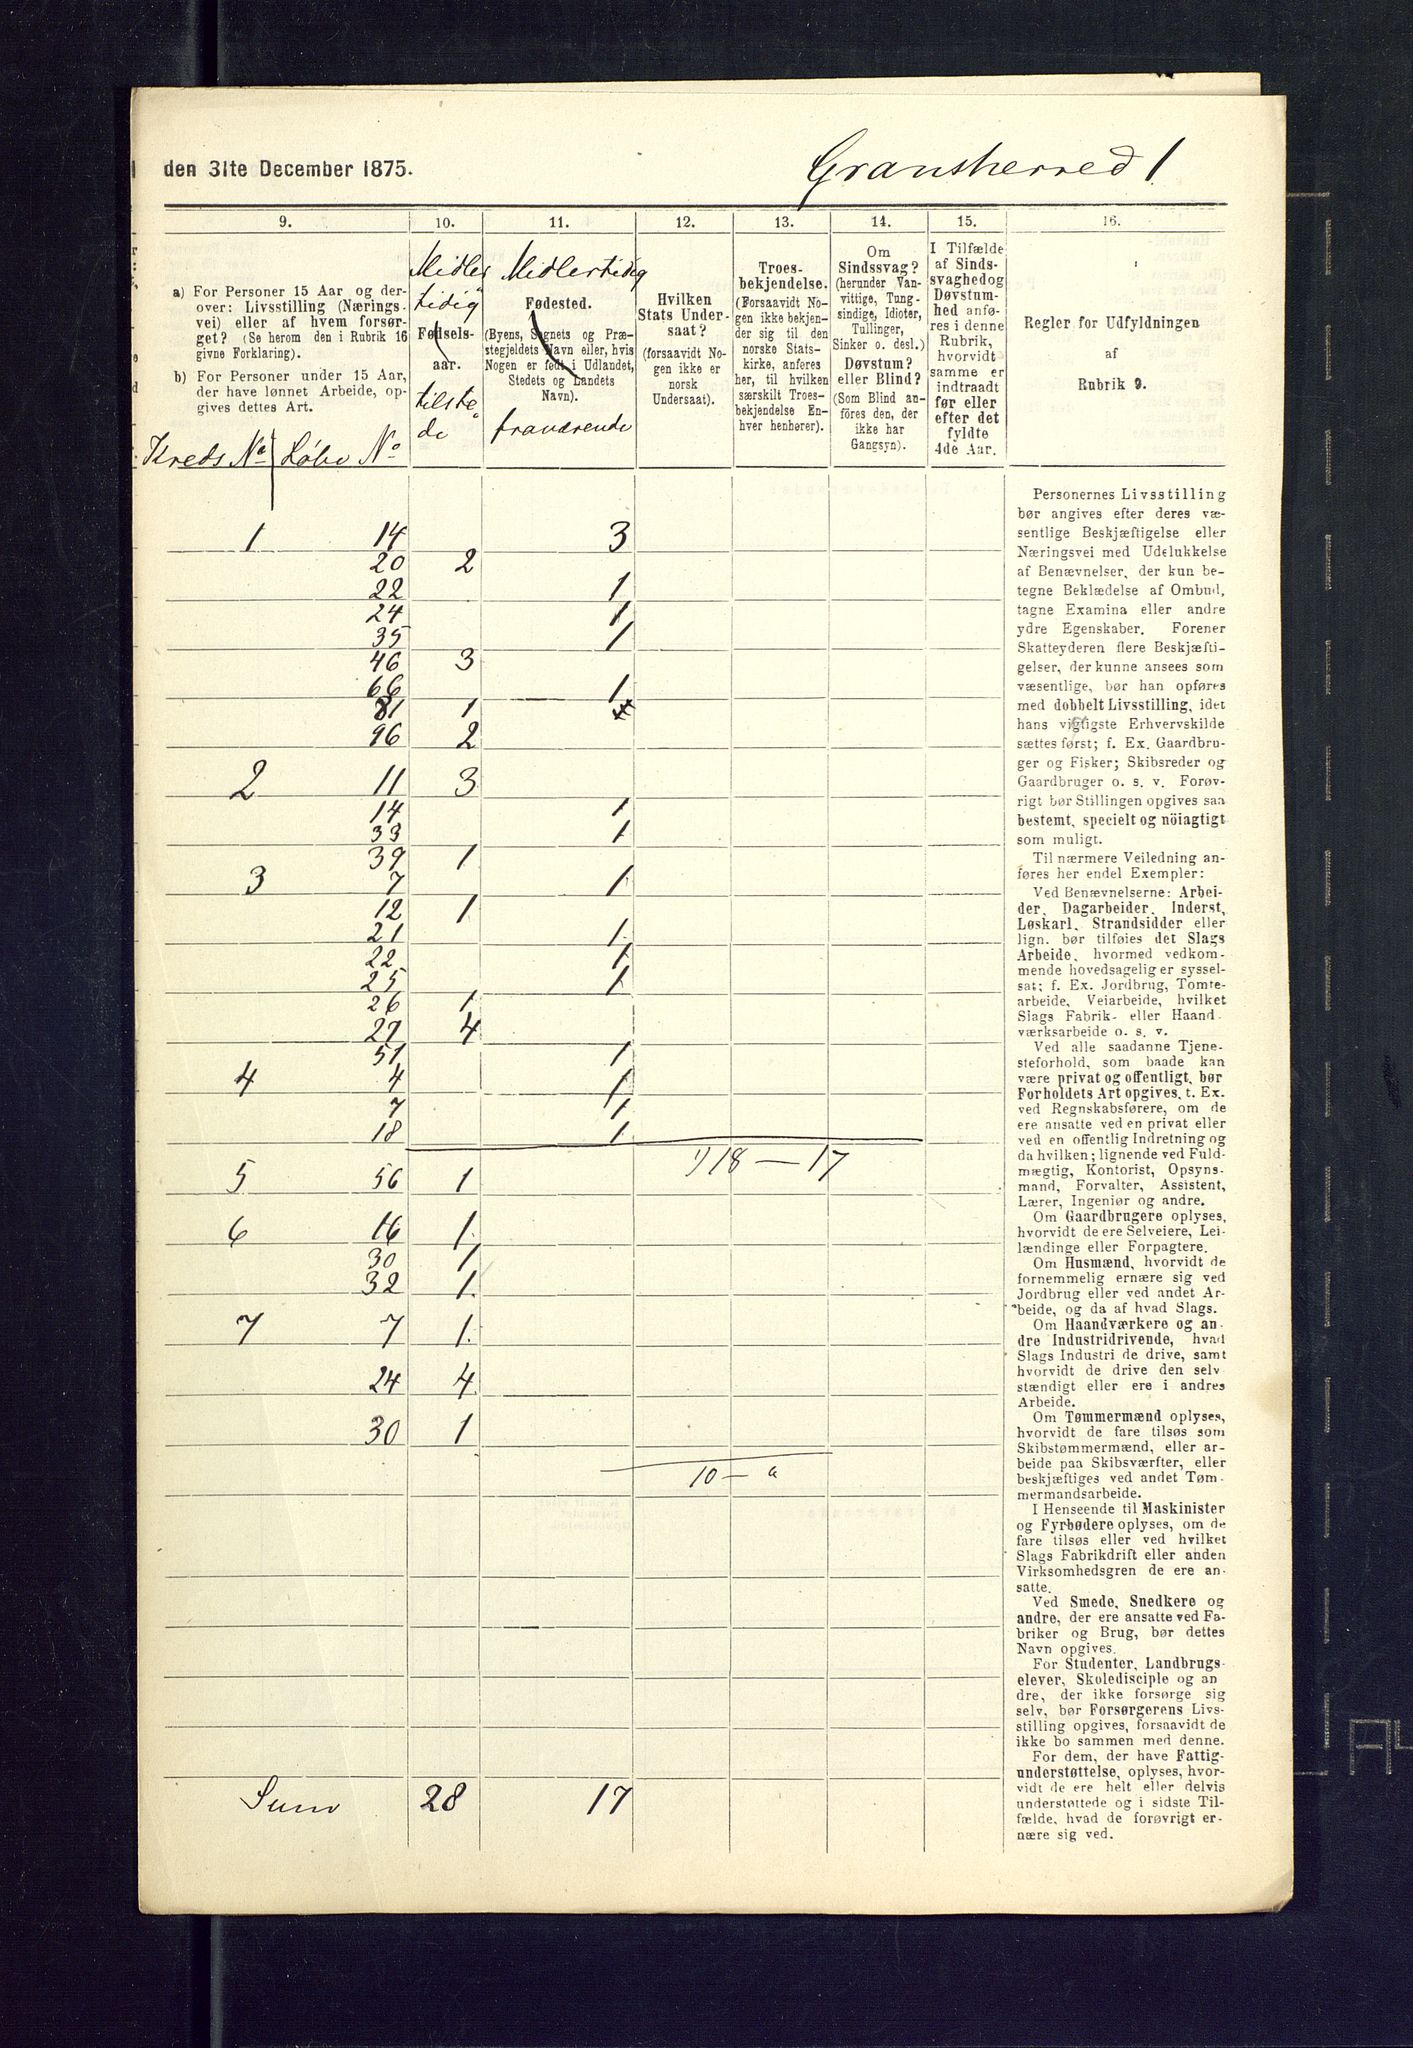 den 31te December 1875.
Gransherred 1
9. 10. 11. 12. 13. 14. 15. 16.
a) For Personer 15 Aar og der-
over: Livsstilling (Nærings-
vei) eller af hvem forsør-
get? (Se herom den i Rubrik 16
givne Forklaring).
b) For Personer under 15 Aar,
der have lønnet Arbeide, op-
gives dettes Art.
Kreds No Løbe No
Midler
tidig
Fødsels-
aar.
tilste
de
Midlertidig
Fødested.
(Byens, Sognets og Præ-
stegjeldets Navn eller, hvis
Nogen er født i Udlandet,
Stedets og Landets
Navn).
fraværende
Hvilken
Stats Under-
saat?
(forsaavidt No-
gen ikke er
norsk
Undersaat).
Troes-
bekjendelse.
(Forsaavidt No-
gen ikke bekjen-
der sig til den
norske Stats-
kirke, anføres
her, til hvilken
særskilt Troes-
bekjendelse En-
hver henhører).
Om
Sindssvag?
(herunder Van-
vittige, Tung-
sindige, Idioter,
Tullinger,
Sinker o. desl.)
Døvstum?
eller Blind?
(Som Blind an-
föres den, der
ikke har
Gangsyn).
I Tilfælde
af Sinds-
svaghedog
Døvstum-
hed anfø-
res i denne
Rubrik,
hvorvidt
samme er
indtraadt
før eller
efter det
fyldte
4de Aar.
Regler for Udfyldningen
af
Rubrik 9.
1 14 3
20 2
22 1
24 1
35 1
46 3
66 1
81 1
96 2
2 11 3
14 1
33 1
39 1
3 7 1
12 1
21 1
22 1
25 1
26 1
27 4
51 1
4 4 1
7 1
18 1
1) 18 — 17
5 56 1
6 16 1
30 1
32 1
7 7 1
24 4
30 1
10 — "
Sum 28 17
Personernes Livsstilling
bør angives efter deres væ-
sentlige Beskjæftigelse eller
Næringsvei med Udelukkelse
af Benævnelser, der kun be-
tegne Beklædelse af Ombud,
tagne Examina eller andre
ydre Egenskaber. Forener
Skatteyderen flere Beskjæfti-
gelser, der kunne ansees som
væsentlige, bør han opføres
med dobbelt Livsstilling, idet
hans vigtigste Erhvervskilde
sættes først; f. Ex. Gaardbru-
ger og Fisker; Skibsreder og
Gaardbruger o. s. v. Forøv-
rigt bør Stillingen opgives saa
bestemt, specielt og nöiagtigt
som muligt.
Til nærmere Veiledning an-
føres her endel Exempler:
Ved Benævnelserne: Arbei-
der, Dagarbeider, Inderst,
Løskarl, Strandsidder eller
lign. bør tilføies det Slags
Arbeide, hvormed vedkom-
mende hovedsagelig er syssel-
sat; f. Ex. Jordbrug, Tomte-
arbeide, Veiarbeide, hvilket
Slags Fabrik- eller Haand-
værksarbeide o. s. v.
Ved alle saadanne Tjene-
steforhold, som baade kan
være privat og offentligt, bør
Forholdets Art opgives, t. Ex.
ved Regnskabsførere, om de
ere ansatte ved en privat eller
ved en offentlig Indretning og
da hvilken; lignende ved Fuld-
mægtig, Kontorist, Opsyns-
mand, Forvalter, Assistent,
Lærer, Ingeniør og andre.
Om Gaardbrugere oplyses,
hvorvidt de ere Selveiere, Lei-
lændinge eller Forpagtere.
Om Husmænd, hvorvidt de
fornemmelig ernære sig ved
Jordbrug eller ved andet Ar-
beide, og da af hvad Slags.
Om Haandværkere og an-
dre Industridrivende, hvad
Slags Industri de drive, samt
hvorvidt de drive den selv-
stændigt eller ere i andres
Arbeide.
Om Tømmermænd oplyses,
hvorvidt de fare tilsøs som
Skibstømmermænd, eller ar-
beide paa Skibsværfter, eller
beskjæftiges ved andet Tøm-
mermandsarbeide.
I Henseende til Maskinister
og Fyrbødere oplyses, om de
fare tilsøs eller ved hvilket
Slags Fabrikdrift eller anden
Virksomhedsgren de ere an-
satte.
Ved Smede, Snedkere og
andre, der ere ansatte ved Fa-
briker og Brug, bør dettes
Navn opgives.
For Studenter, Landbrugs-
elever, Skoledisciple og an-
dre, der ikke forsørge sig
selv, bør Forsørgerens Livs-
stilling opgives, forsaavidt de
ikke bo sammen med denne.
For dem, der have Fattig-
understøttelse, oplyses, hvor-
vidt de ere helt eller delvis
understøttede og i sidste Til-
fælde, hvad de forøvrigt er-
nære sig ved.